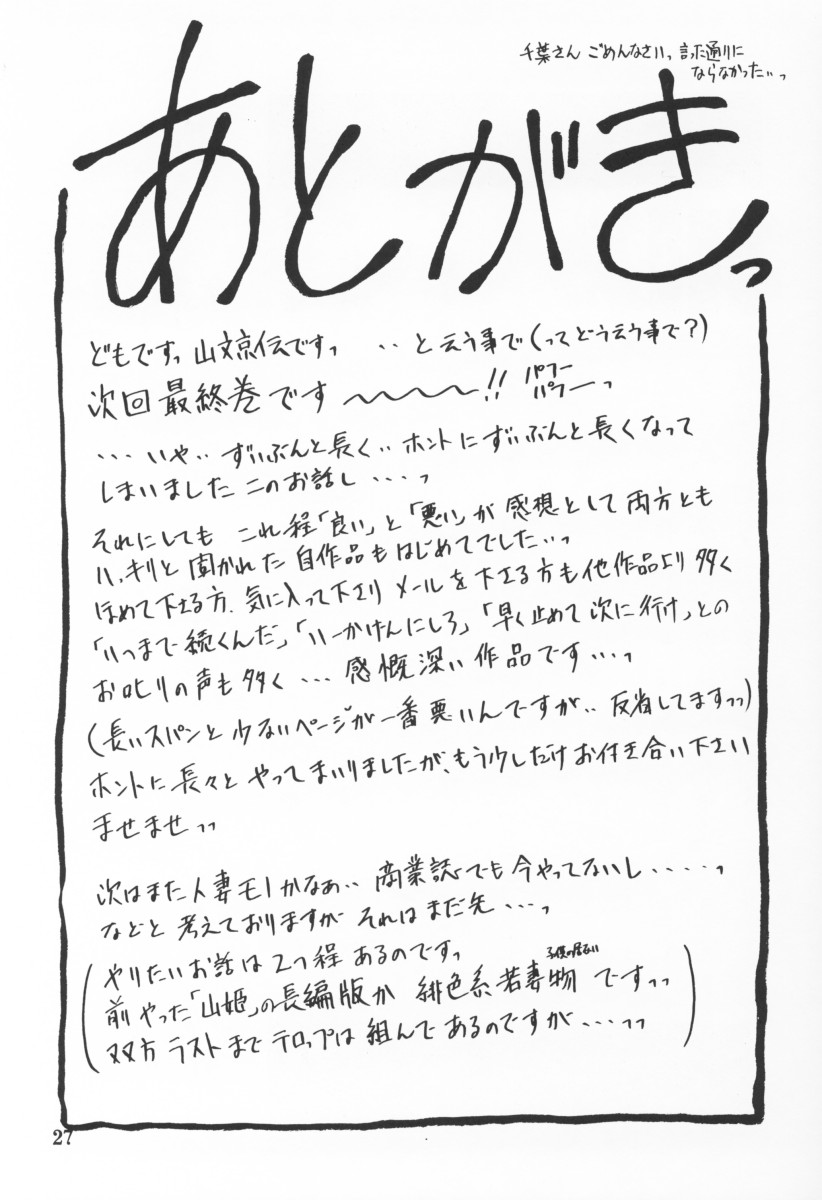 千葉さん ごめんなさいっ 言った通りに
ならなかった‥っ
あとがきっ
どもですっ 山文京伝ですっ ‥と云う事で(ってどう云う事で?)
次回最終巻です〜〜〜〜!! パフーパフーっ
‥‥いや‥ずいぶんと長く‥ホントにずいぶんと長くなって
しまいましたこのお話し‥‥っ
それにしても これ程「良い」と「悪い」が感想として両方とも
ハッキリと聞かれた自作品もはじめてでした‥っ
ほめて下さる方、気に入って下さり メールを下さる方も他作品より多く
「いつまで続くんだ」「いーかげんにしろ」「早く止めて次に行け」との
お叱りの声も多く…感慨深い作品です‥‥っ
(長いスパンと少ないページが一番悪いんですが‥反省してますっっ)
ホントに長々と やってまいりましたが、もう少しだけお付き合い下さい
ませませっっ
次はまた人妻モノかなぁ‥商業誌でも今やってないし‥‥‥っ
などと 考えておりますが それはまだ先‥‥っ
(やりたいお話は2つ程あるのですっ
前やった「山姫」の長編版か 緋色系若妻物ですっっ
子供の居ない
双方 ラストまでテロップは組んであるのですが‥‥っっ)
27